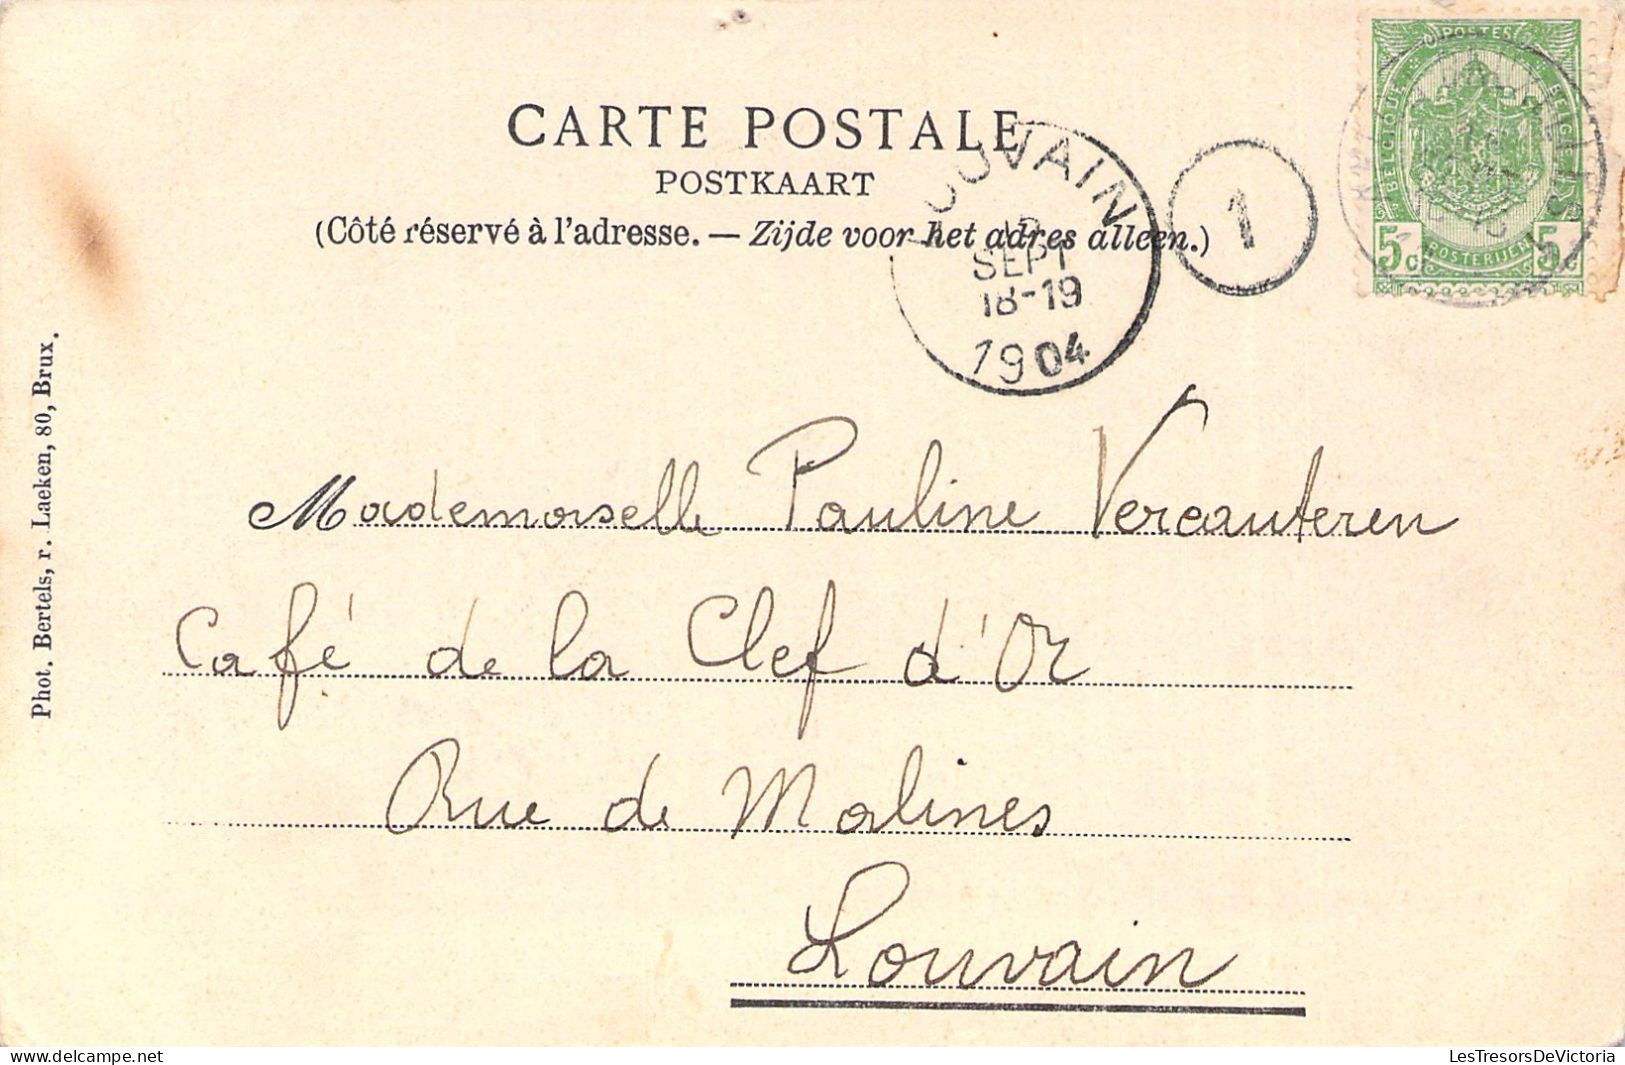 CARTE POSTALE
POSTKAART
(Côté réservé à l'adresse. — Zijde voor het adres alleen.)
LOUVAIN
12
SEPT
18-19
1904
1
POSTES
BELGIQUE
BELGIE
5c
POSTERIJEN
5c
Phot. Bertels, r. Laeken, 80, Brux.
Mademoiselle Pauline Vercauteren
Café de la Clef d'Or
Rue de Malines
Louvain
delcampe.net
LesTresorsDeVictoria